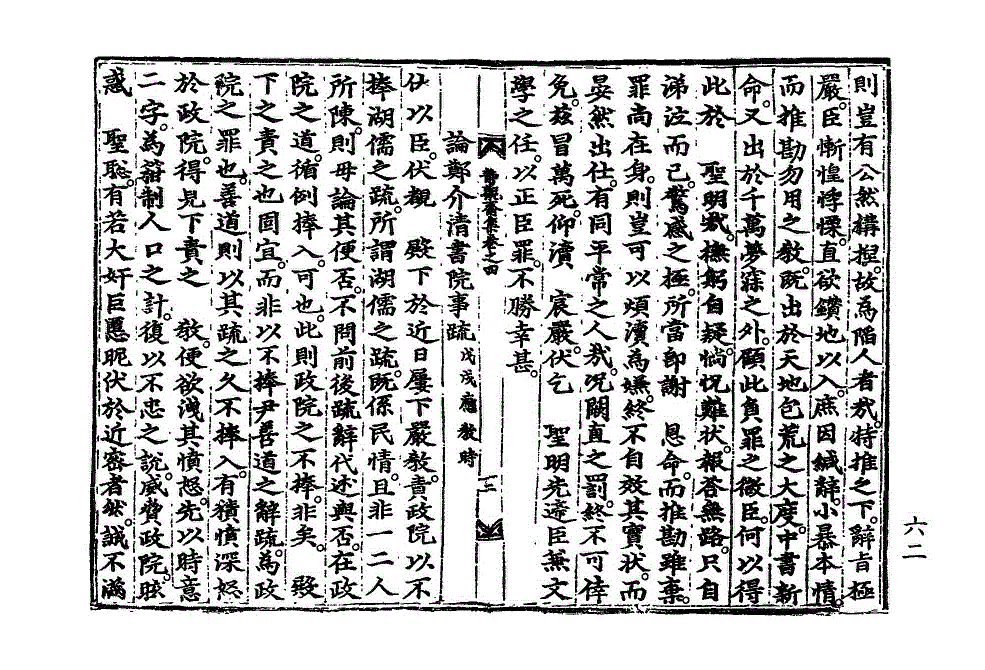 則豈有公然構捏。故爲陷人者哉。持推之下。辭旨極
嚴。臣慚惶悸慄。直欲鑽地以入。庶因緘辭。小暴本情。
而推勘勿用之敎。旣出於天地包荒之大度。中書新
命。又出於千萬夢寐之外。顧此負罪之微臣。何以得
此於 聖明哉。撫躬自疑。惝怳難狀。報答無路。只自
涕泣而已。驚惑之極。所當卽謝 恩命。而推勘雖棄。
罪尙在身。則豈可以煩瀆爲嫌。終不自效其實狀。而
晏然出仕。有同平常之人哉。況闕直之罰。終不可倖
免。玆冒萬死。仰瀆 宸嚴。伏乞 聖明先遞臣兼文
學之任。以正臣罪。不勝幸甚。
靜觀齋集卷之四 三
論鄭介淸書院事疏 戊戌應敎時
伏以臣伏觀 殿下於近日屢下嚴敎。責政院以不
捧湖儒之疏。所謂湖儒之疏。旣係民情。且非一二人
所陳。則毋論其便否。不問前後疏辭代述與否。在政
院之道。循例捧入。可也。此則政院之不捧。非矣。 殿
下之責之也固宜。而非以不捧尹善道之辭疏。爲政
院之罪也。善道則以其疏之久不捧入。有積憤深怒
於政院。得見下責之 敎。便欲洩其憤怒。先以時意
二字。爲箝制人口之計。復以不忠之說。威脅政院。眩
惑 聖聰。有若大奸巨慝昵伏於近密者然。誠不滿
六二